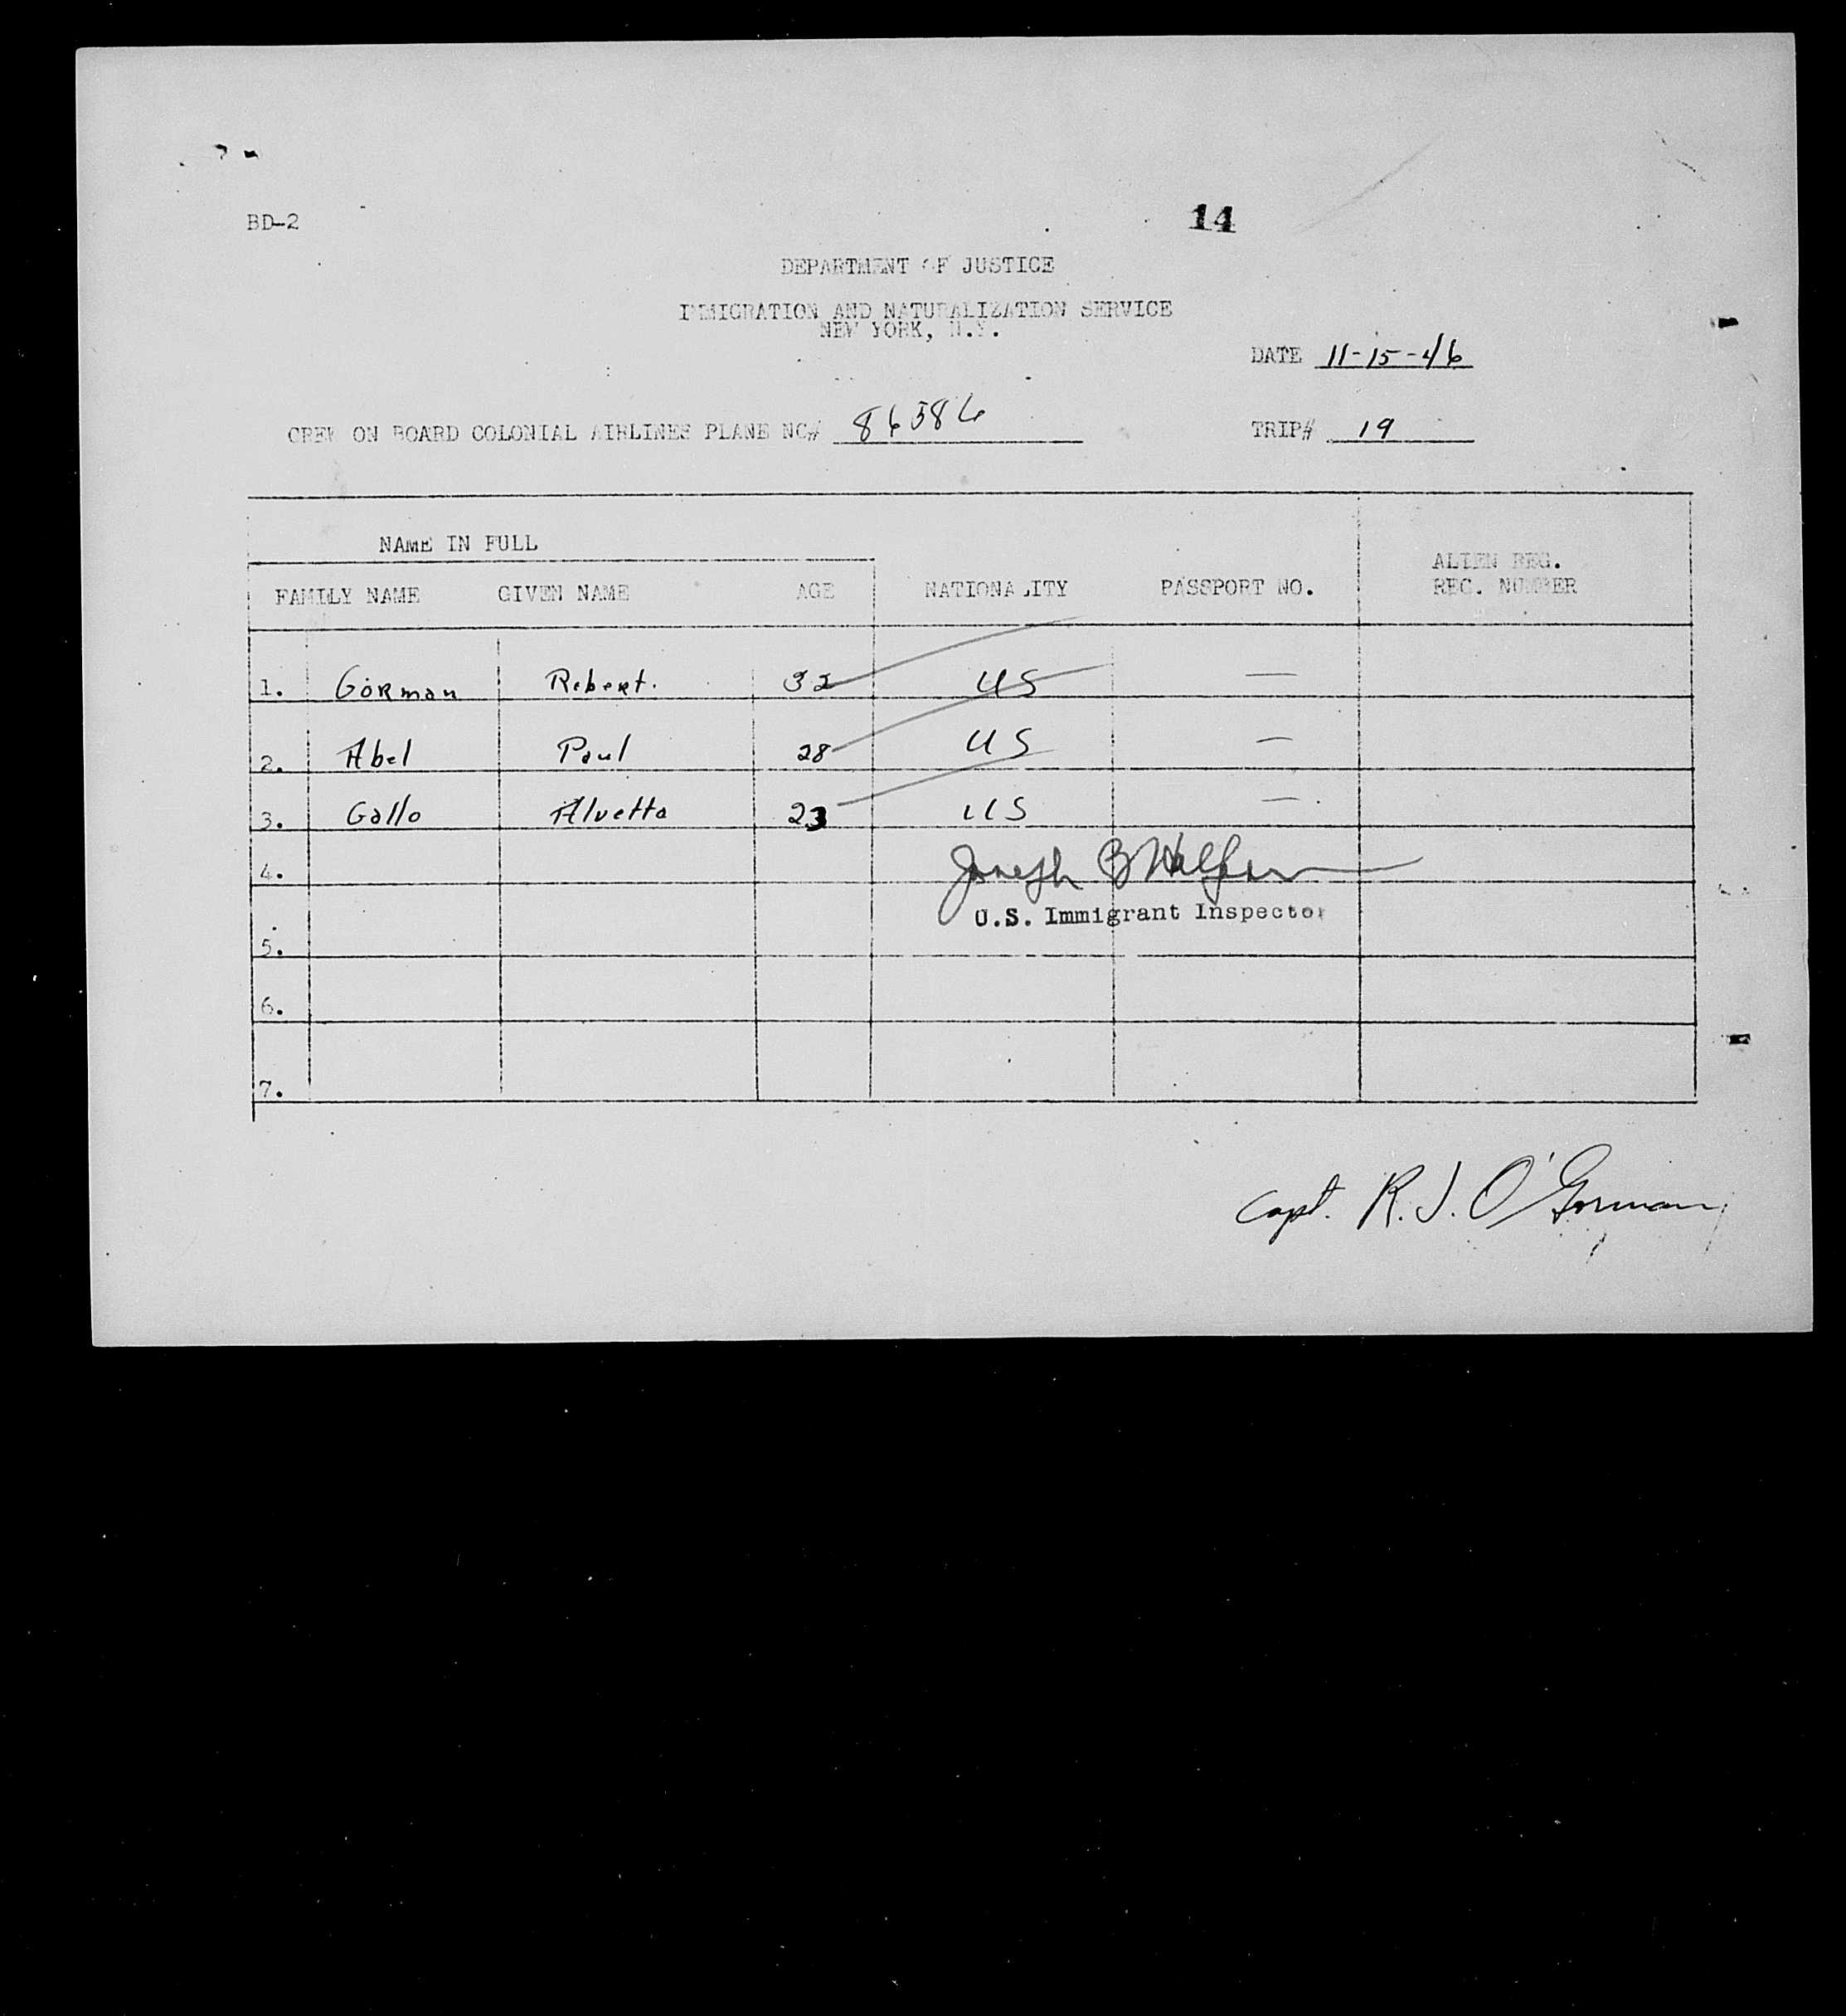 BD-2
14
DEPARTMENT OF JUSTICE
IMMIGRATION AND NATURALIZATION SERVICE
NEW YORK, N.Y.
DATE 11-15-46
CREW ON BOARD COLONIAL AIRLINES PLANE NC# 86586
TRIP# 19
NAME IN FULL
FAMILY NAME GIVEN NAME AGE NATIONALITY PASSPORT NO. ALIEN REG. REC. NUMBER
1. Gorman Robert. 32 US —
2. Abel Paul 28 US —
3. Gallo Alvetta 23 US —
4. Joseph B
U.S. Immigrant Inspector
5.
6.
7.
Capt. R. J. O'Gorman